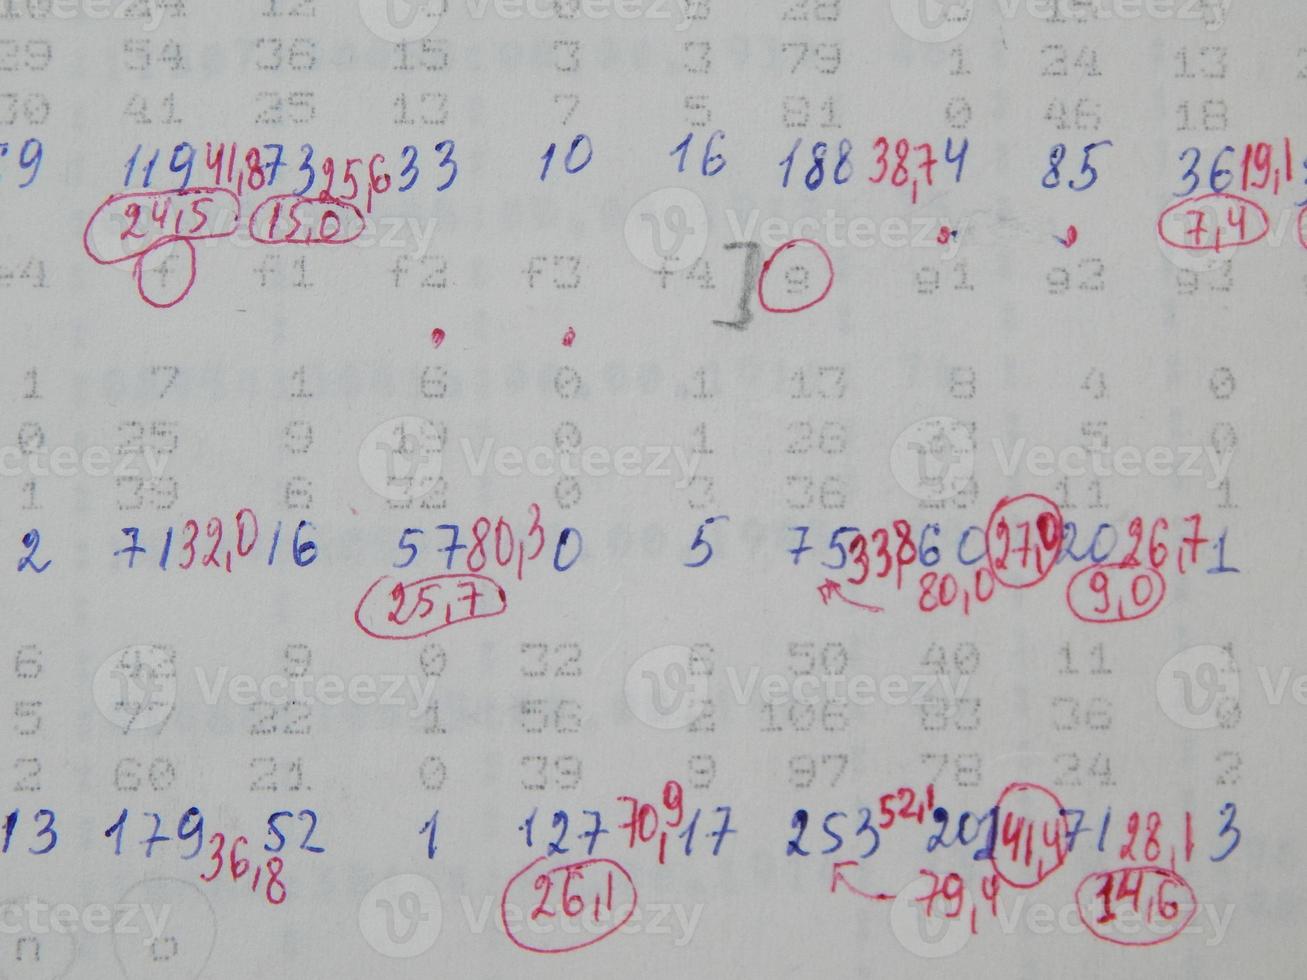 39 54 36 15 3 3 79 1 24 13
30 41 25 13 7 5 81 0 46 18
9 119 41,8 73 25,6 33 10 16 188 38,7 4 85 36 19,1
24,5 15,0 7,4
f f1 f2 f3 f4 ] g g1 g2 g3
1 7 1 6 0 1 13 8 4 0
0 25 9 19 0 1 26 23 5 0
1 39 6 32 0 3 36 29 11 1
2 71 32,0 16 57 80,3 0 5 75 33,8 60 27,0 20 26,7 1
25,7 80,0 9,0
6 43 9 0 32 6 50 40 11 1
5 77 22 1 56 2 106 83 36 0
2 60 21 0 39 9 97 78 24 2
13 179 36,8 52 1 127 70,9 17 253 52,1 201 41,4 71 28,1 3
26,1 79,4 14,6
n o